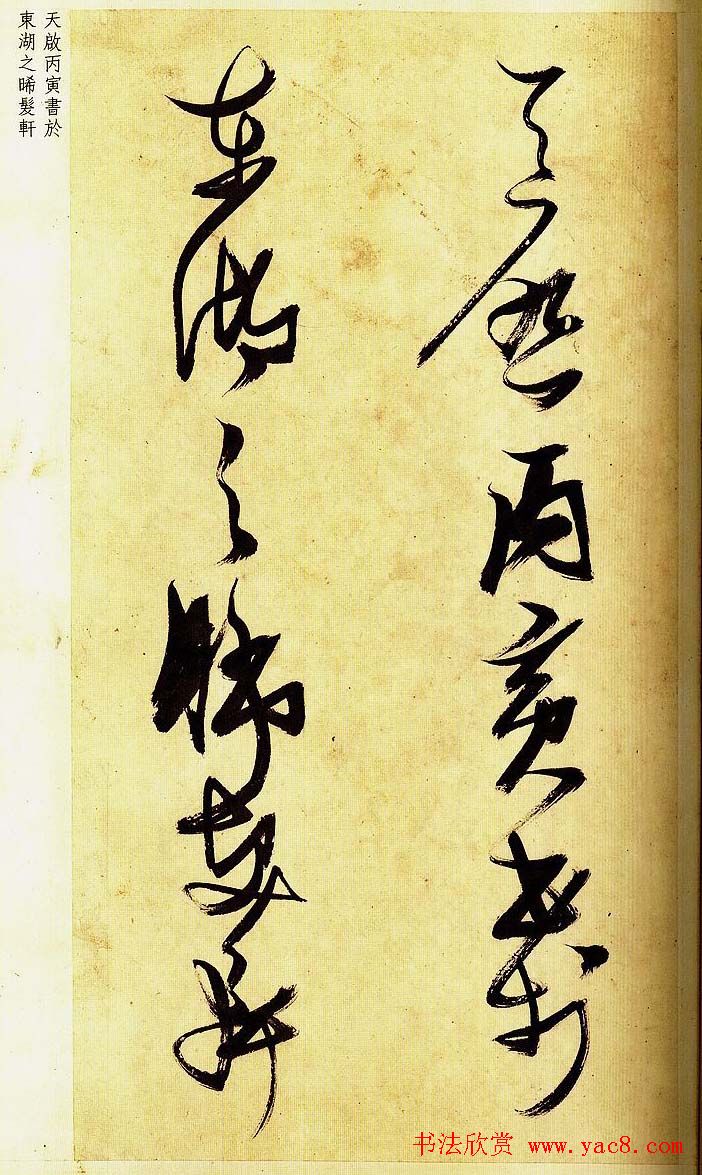 天啟丙寅書於
東湖之晞髮軒
天啟丙寅書於
東湖之晞髮軒
书法欣赏 www.yac8.com